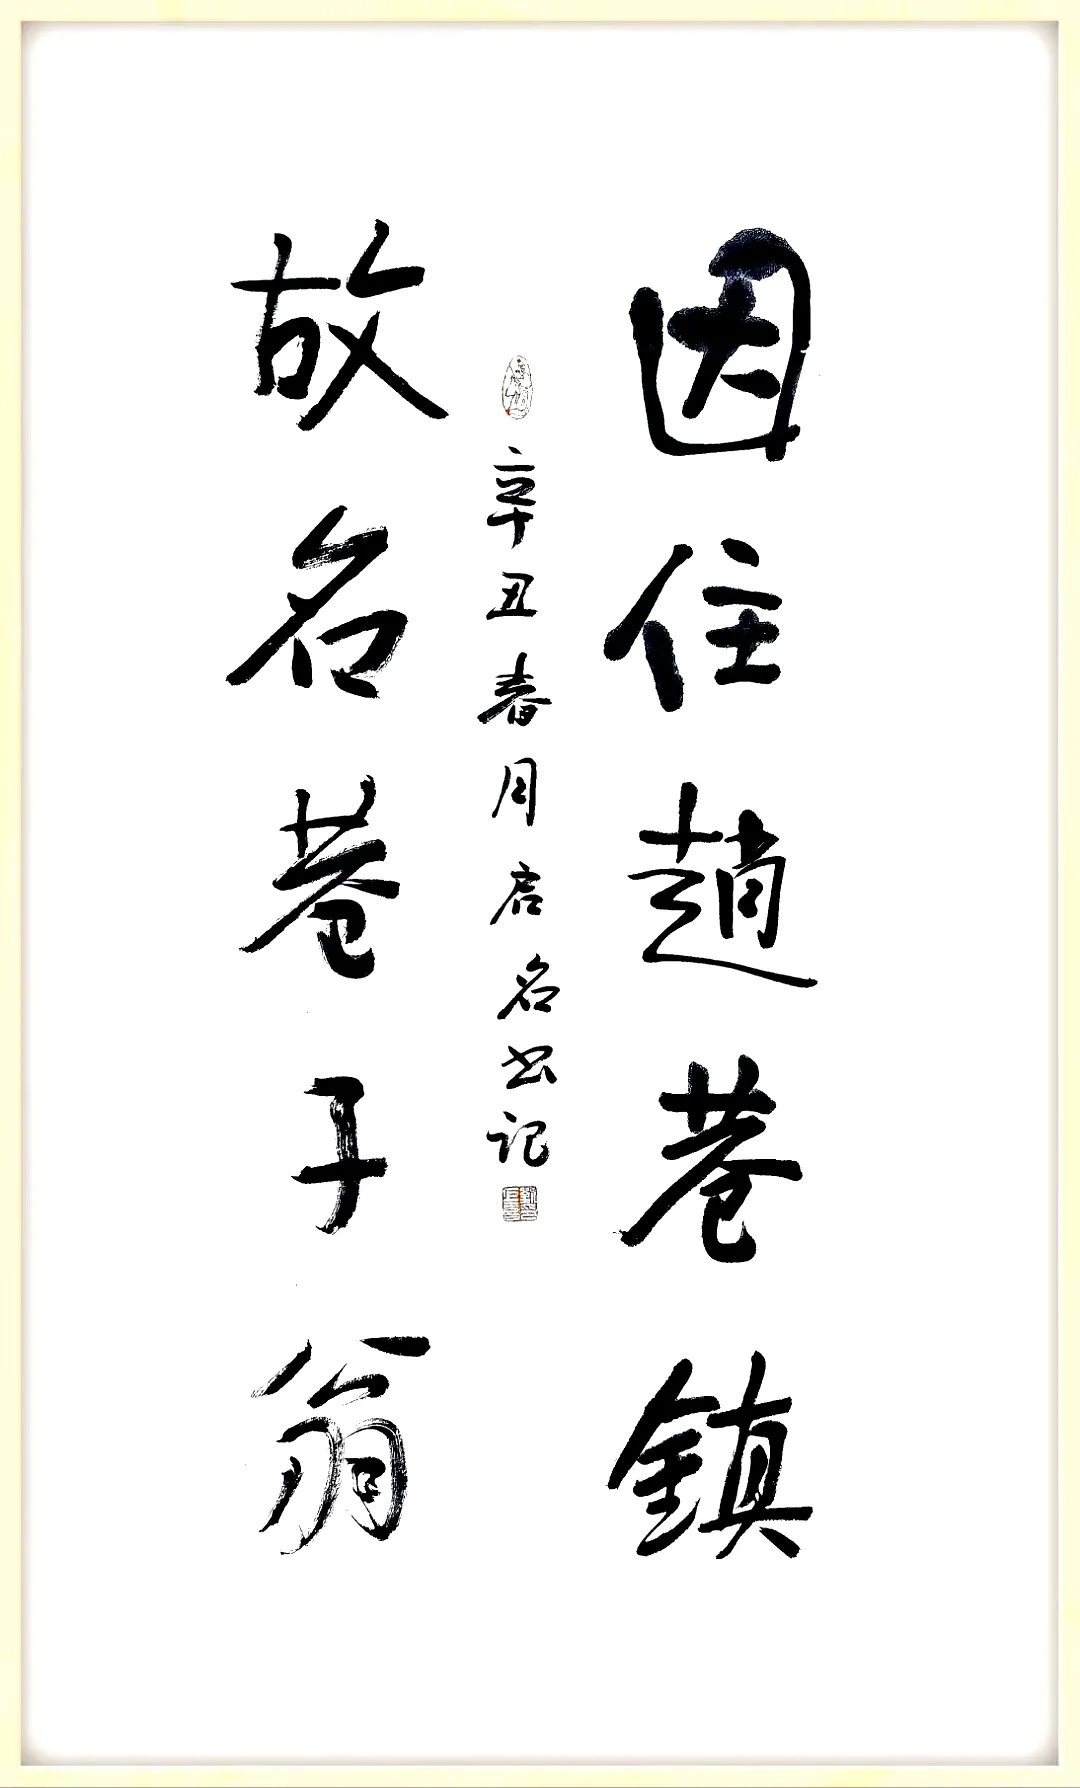 因住趙巷鎮
故名巷子翁
辛丑春月启名书记